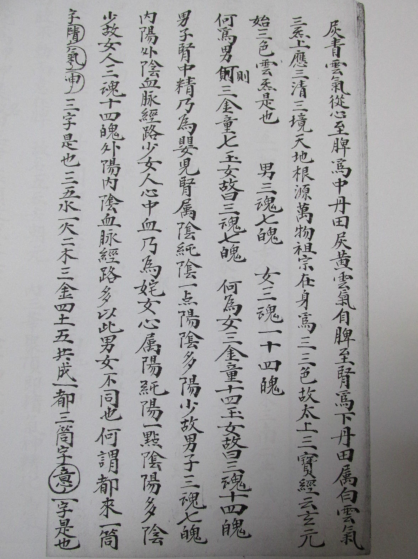 炁青雲氣從心至脾爲中丹田炁黃雲氣自脾至腎爲下丹田属白雲氣
三炁上應三清三境天地根源萬物祖宗在身爲三三色故太上三寶經云玄元
始三色雲炁是也 男三魂七魄 女三魂一十四魄
何爲男則三金童七玉女故曰三魂七魄 何為女三金童十四玉女故曰三魂十四魄
男子腎中精乃為嬰児腎属陰純陰一点陽陰多陽少故男子三魂七魄
内陽外陰血脉經路少女人心中血乃為姹女心属陽純陽一點陰陽多陰
少故女人三魂十四魄外陽内陰血脉經路多以此男女不同也何謂都來一箇
字精炁神三字是也三五水一火二木三金四土五共成一都三箇字意一字是也